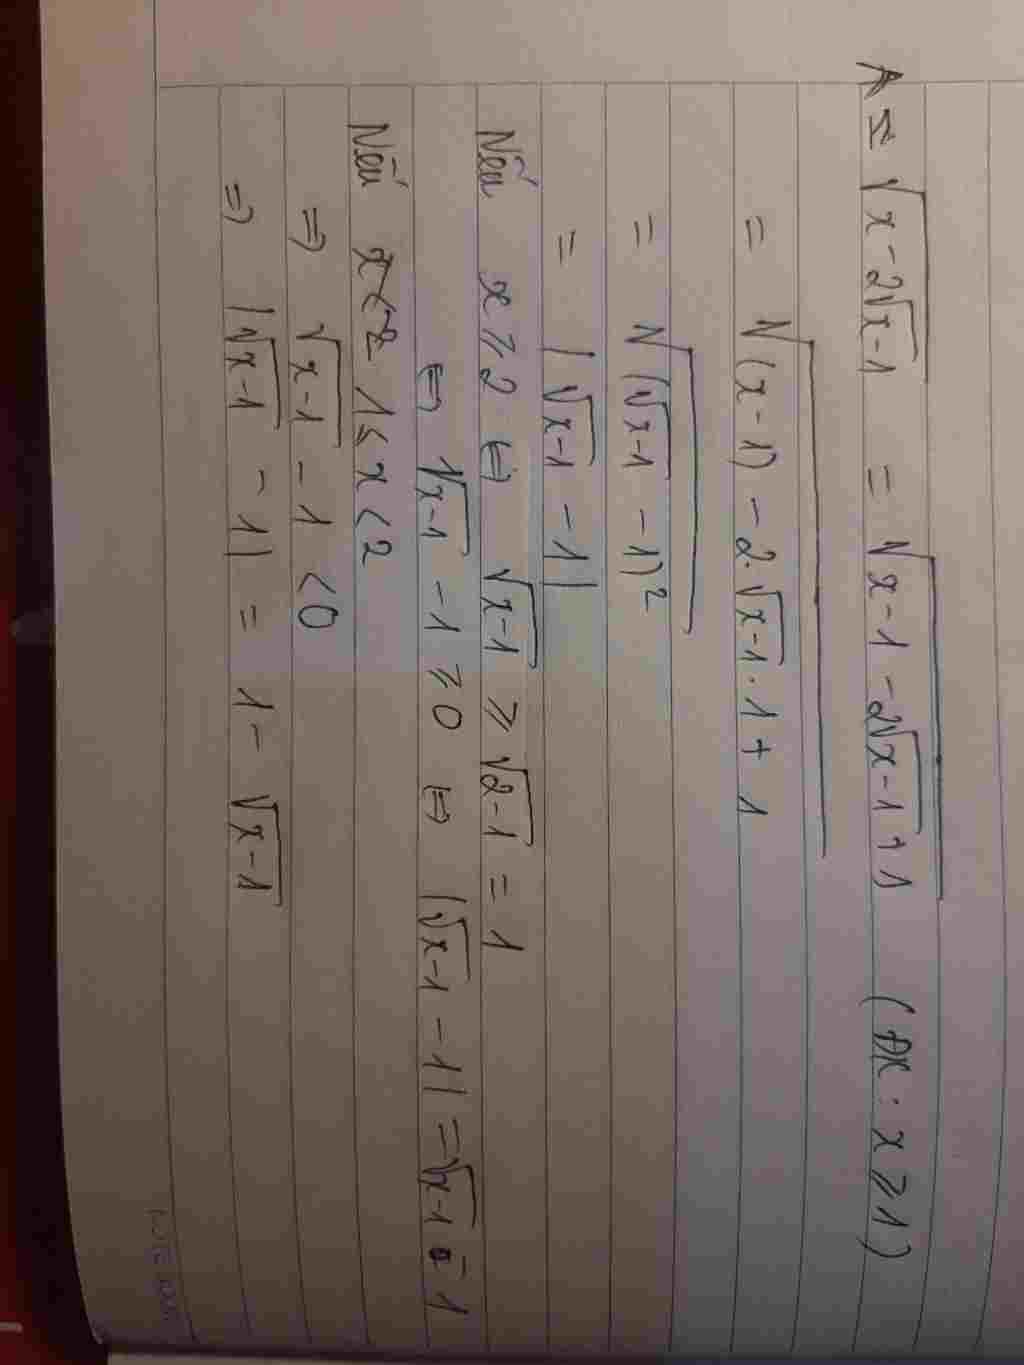 A = √(x-2√(x-1)) = √(x-1-2√(x-1)+1) (ĐK: x ≥ 1)
= √((x-1) - 2.√(x-1).1 + 1)
= √((√(x-1) - 1)²)
= |√(x-1) - 1|
Nếu x ≥ 2 ⇔ √(x-1) ≥ √(2-1) = 1
⇔ √(x-1) - 1 ≥ 0 ⇔ |√(x-1) - 1| = √(x-1) - 1
Nếu 1 ≤ x < 2
⇒ √(x-1) - 1 < 0
⇒ |√(x-1) - 1| = 1 - √(x-1)